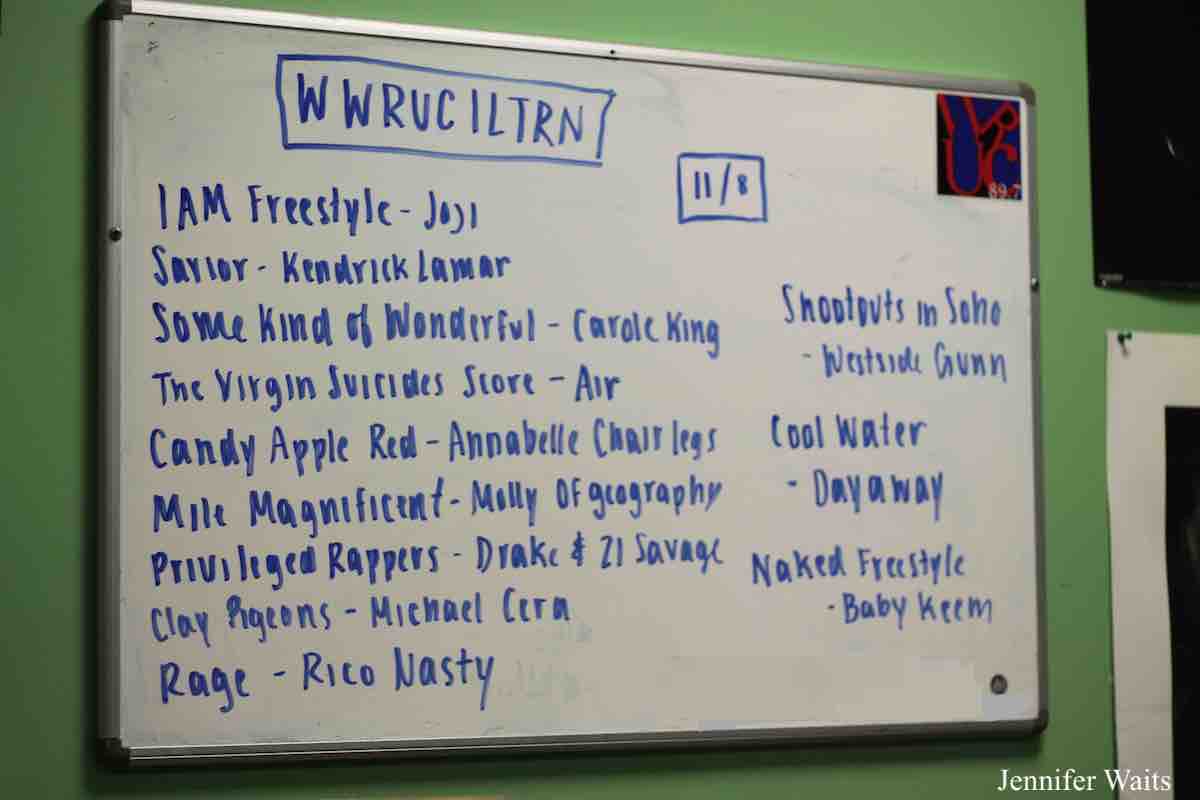 WWRUCILTRN
11/8
WRUC
89.7
IAM Freestyle - Joji
Savior - Kendrick Lamar
Some Kind of Wonderful - Carole King
The Virgin Suicides Score - Air
Candy Apple Red - Annabelle Chairlegs
Mile Magnificent - Molly OFgeography
Privileged Rappers - Drake & 21 Savage
Clay Pigeons - Michael Cera
Rage - Rico Nasty
Shootouts in Soho
- Westside Gunn
Cool Water
- Dayaway
Naked Freestyle
- Baby Keem
Jennifer Waits